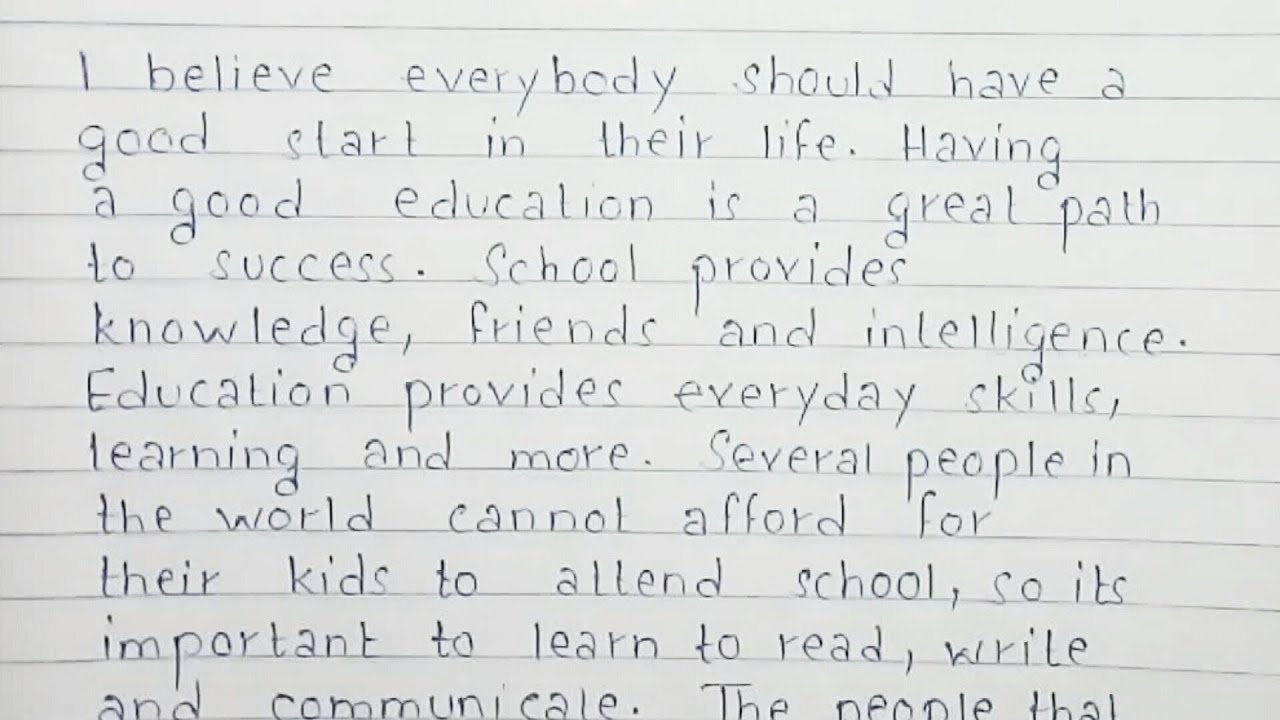 I believe everybody should have a
good start in their life. Having
a good education is a great path
to success. School provides
knowledge, friends and intelligence.
Education provides everyday skills,
learning and more. Several people in
the world cannot afford for
their kids to attend school, so its
important to learn to read, write
and communicate. The people that